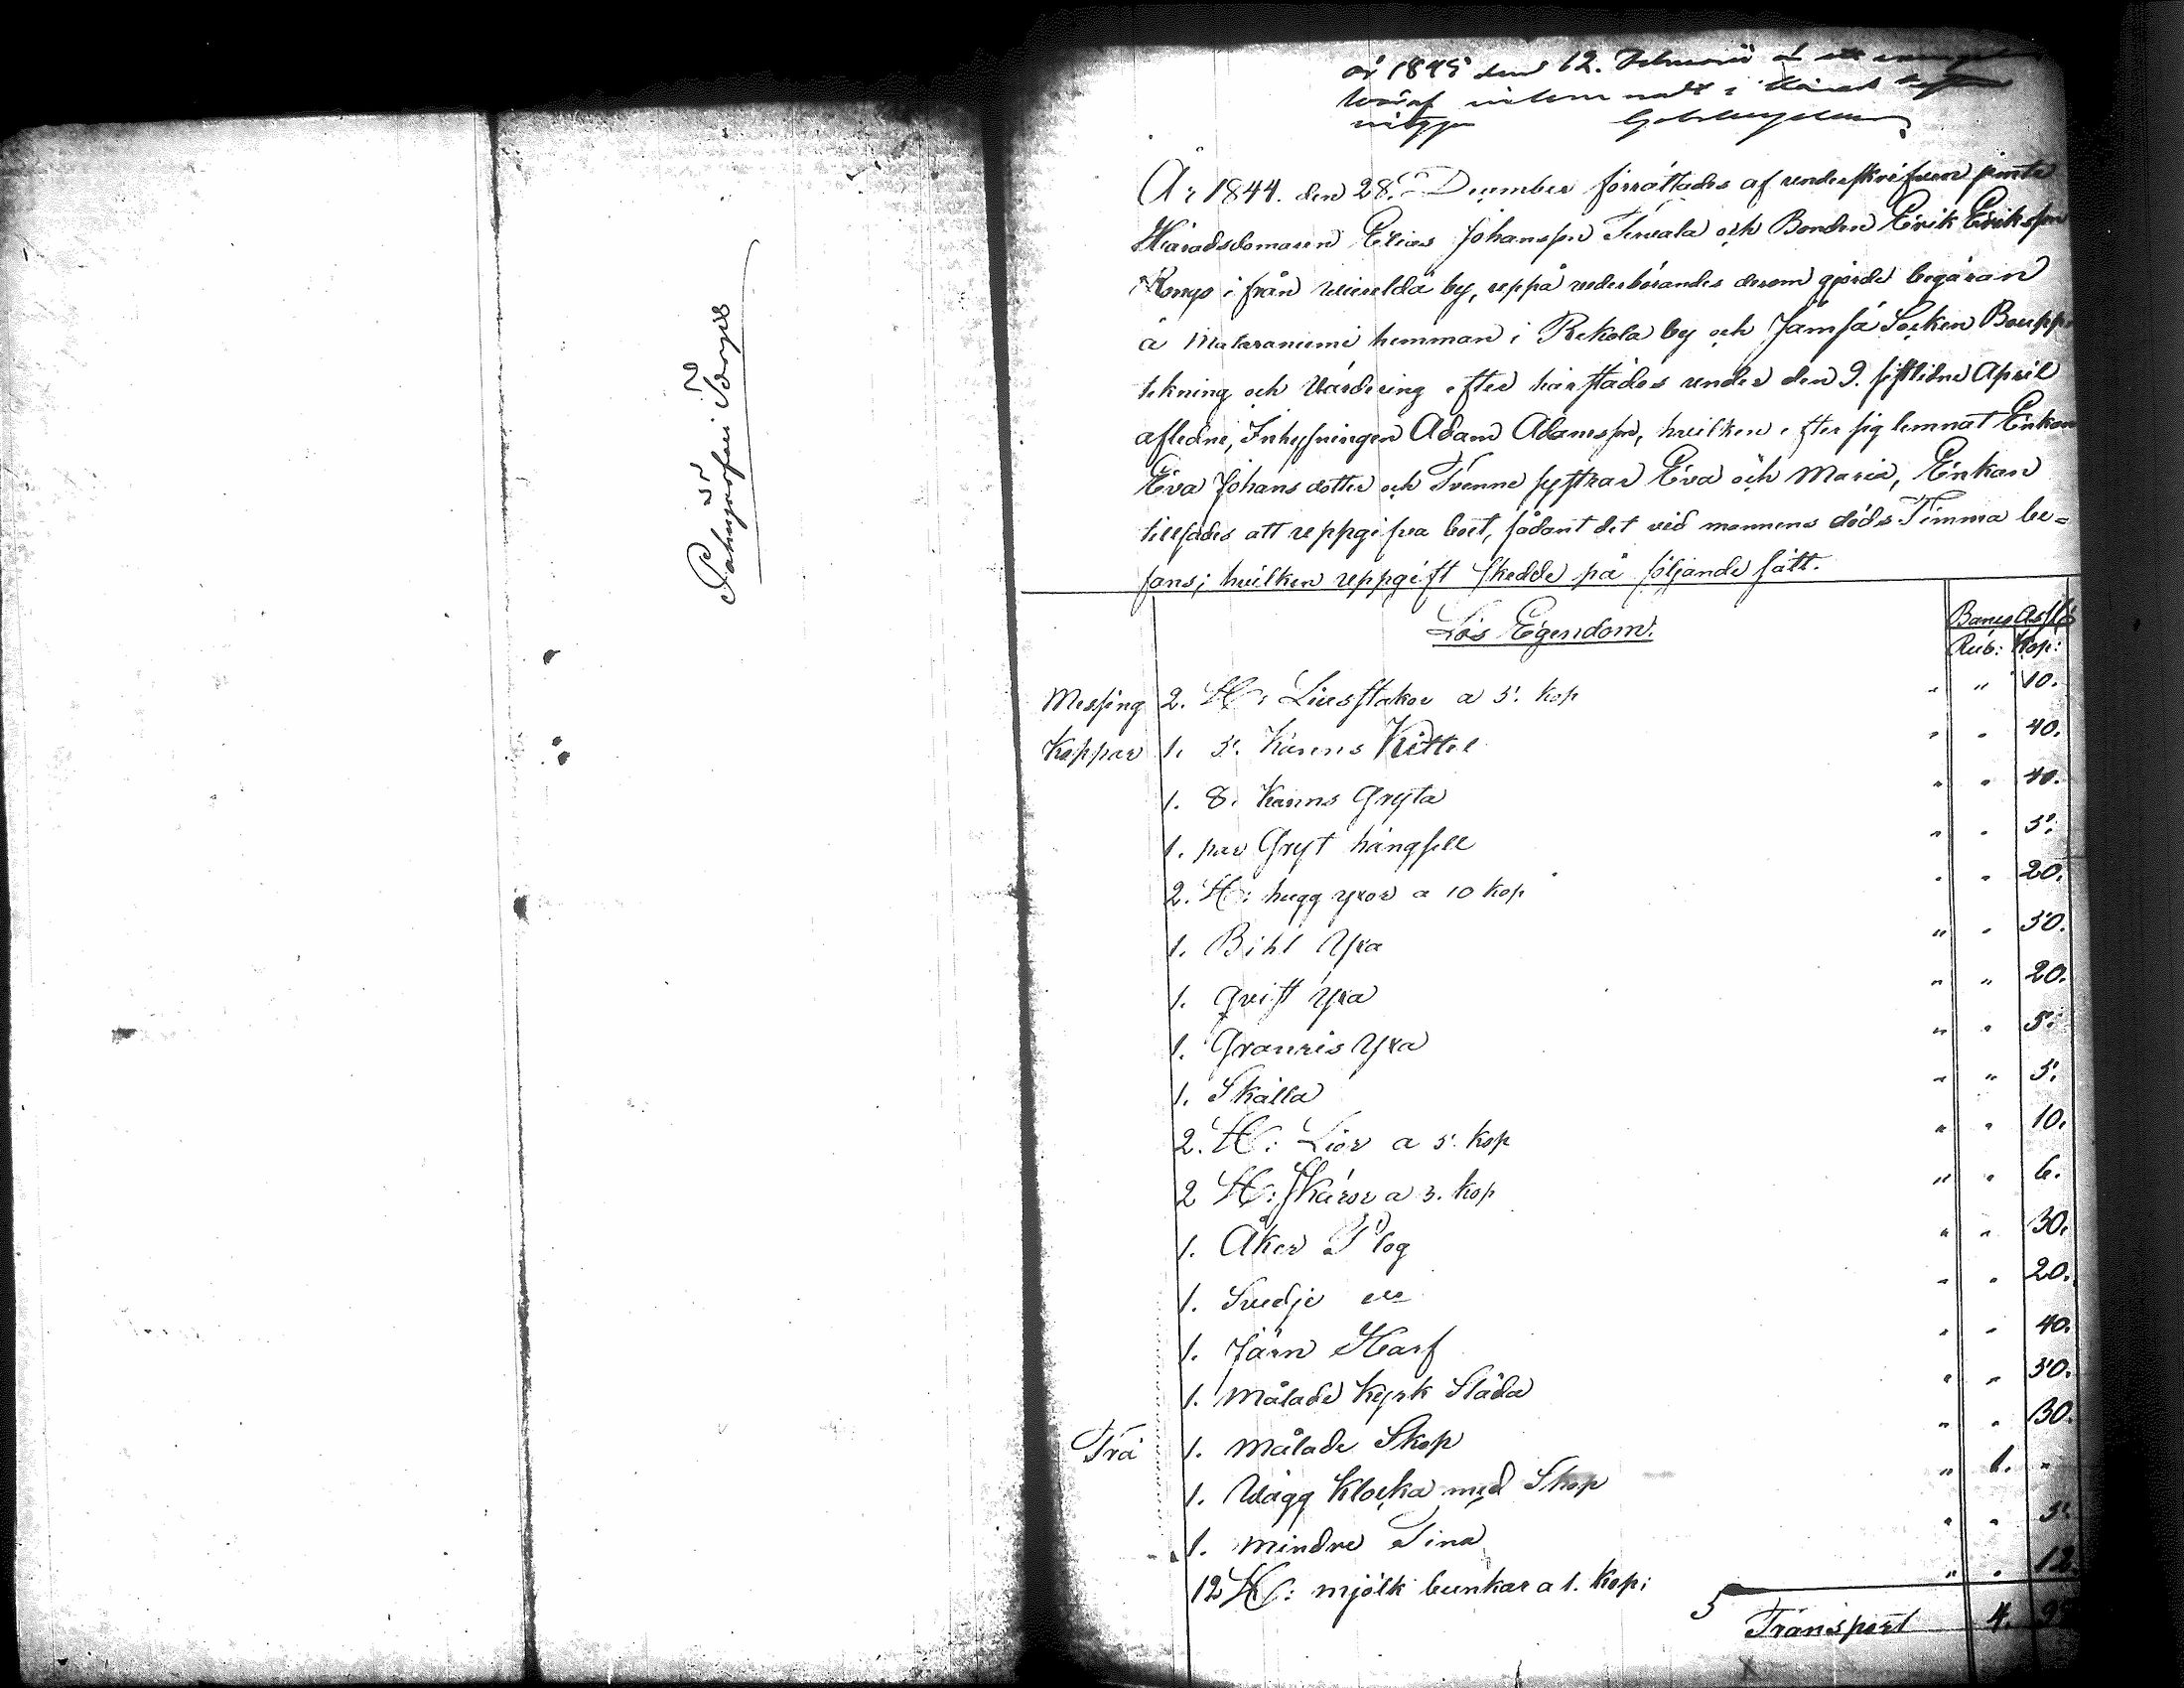 år 1845 den 12. Februari
År 1844. den 28. December förrättades af underskrifven jemte
Häradsdomaren Elias Johansson Tervala och Bonden Erik Eriksson
Rongo ifrån by, uppå vederbörandes derom gjorde begäran
å Mataraniemi hemman i Rekola by och Jämsä Socken Boupp
tekning och Värdering efter härstädes under den 9. sistlidne April
afledne, Inhysningen Adam Adamsson, hvilken efter sig lemnat Enkan
Eva Johansdotter och Tvenne systrar Eva och Maria, Enkan
tillsades att uppgifva boet, sådant det vid mannens döds Timma be=
fans; hvilken uppgift skedde på följande sätt.
Lös Egendom.
Banco Ass
Rub: Kop:
Messing 2. St: Liusstakor a 5. kop " " 10.
Koppar 1. 5. Kanns Kittel " " 40.
1. 8. Kanns Gryta " " 40.
1. par Gryt hängsell " " 5.
2. St: hugg yxor a 10 kop " " 20.
1. Bihl Yxa " " 50.
1. Qvist Yxa " " 20.
1. Granris Yxa " " 5.
1. Skälla " " 5.
2. St: Liar a 5. kop " " 10.
2 St: Skäror a 3. kop " " 6.
1. Åker Plog " " 30.
1. Svedje " " 20.
1. Järn Harf " " 40.
1. Målade Kyrk Släda " " 50.
Trä 1. Målade Skop " " 30.
1. Vägg Klocka med Skop " 1. "
1. mindre Tina " " 5.
12 St: mjölk bunkar a 1. kop: " " 12.
5
Transport 4.